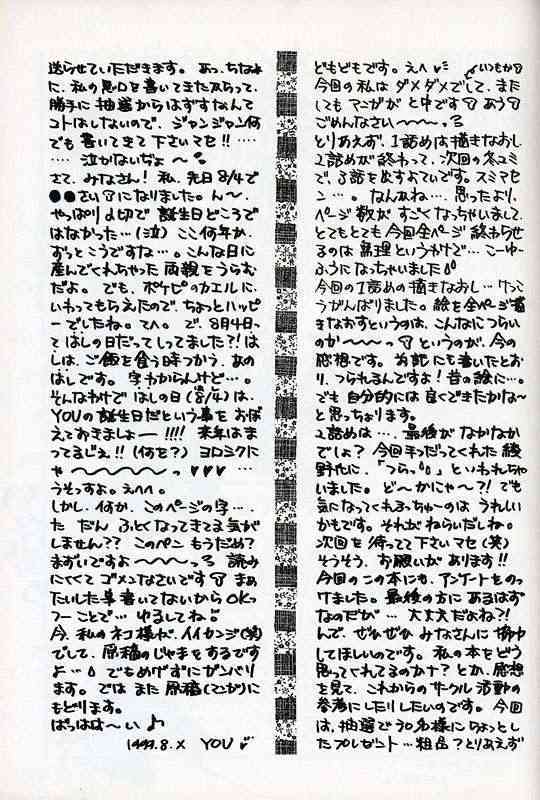 どもどもです。えへ♥ いつもか
今回の私は ダメダメでして、また
しても マンガが と中です あう
ごめんなさい〜〜〜っ
とりあえず、1話めは描きなおし
2話めが終わって、次回の冬コミ
で、3話を出すよていです。スミマセ
ン…。なんかね…。思ったより、
ページ数が すごくなっちゃいまして、
とてもとても今回全ページ 終わらせ
るのは 無理というわけで… こーゆー
ふうになっちゃいました
今回の1話めの描きなおし… けっこ
うがんばりました。絵を全ページ描
きなおすというのは、こんなにつらい
のか〜〜〜っ というのが、今の
感想です。 にも書いたとお
り、つられるんですよ!昔の絵に…。
でも 自分的には 良くできたかな〜
と思っちょります。
2話めは…。最後がなかなか
でしょ? 今回手つだってくれた 綾
野代に、「つらっ」といわれちゃ
いました。ど〜かにゃ〜?! でも
気になってくれちゃっちゃーのは うれしい
かもです。それが ねらいだしね。
次回を 待ってて下さいマセ(笑)
そうそう、お願いが あります!!
今回のこの本にも、アンケートをのっ
けました。最後の方に あるはず
なのだが… 大丈夫だよね?!
んで、ぜひぜひ みなさんに
してほしいのです。私の本をどう
思ってくれてるのかナ? とか、感想
を見て、これからのサークル活動の
参考に したりしたいのです。今回
は、抽選で30名様に ちょっとし
たプレゼント…粗品?とりあえず
送らせていただきます。あっ、ちなみ
に、私の悪口を書いてきたからって、
勝手に 抽選からはずすなんて
コトはしないので、ジャンジャン何
でも 書いてきて 下さいマセ!!……
…… 泣かないぢょ〜
さて、みなさん! 私、先日8/4で
●●さいになりました。ん〜、
やっぱり〆切で 誕生日どころで
はなかった…(泣) ここ何年か、
ずっとこうですね…。こんな日に
産んでくれちゃった 両親をうらむ
だよ。でも、ポケピのカエルに、
いわってもらえたので、ちょっとハッピ
ーでしたね。てへ。で、8月4日っ
て はしの日だってしってました?! は
しは、ご飯を食う時つかう、あの
はしです。字わからんけど…。
そんなわけで はしの日(8/4)は、
YOUの誕生日だという事を おぼ
えておきましょー!!!! 来年はま
ってるじぇ!! (何を?) ヨロシクに
ゃ〜〜〜〜〜っ♥♥♥ …
うそっすよ。えへへ。
しかし、何か、このページの字…、
た だん ふとくなってきてる気が
しません?? このペン もうだめで
まずいですよ〜〜〜っ 読み
にくくて ゴメンなさいです まぁ
たいした事書いてないからOKっ
つーことで… ゆるしてね
今、私のネコ様が、イイカンジ(笑)
でして、原稿のじゃまをするです
よ…。でもめげずにガンバリ
ます。では また 原稿(マンガ)に
もどります。
ばっはは〜い♪
1999.8.X YOU